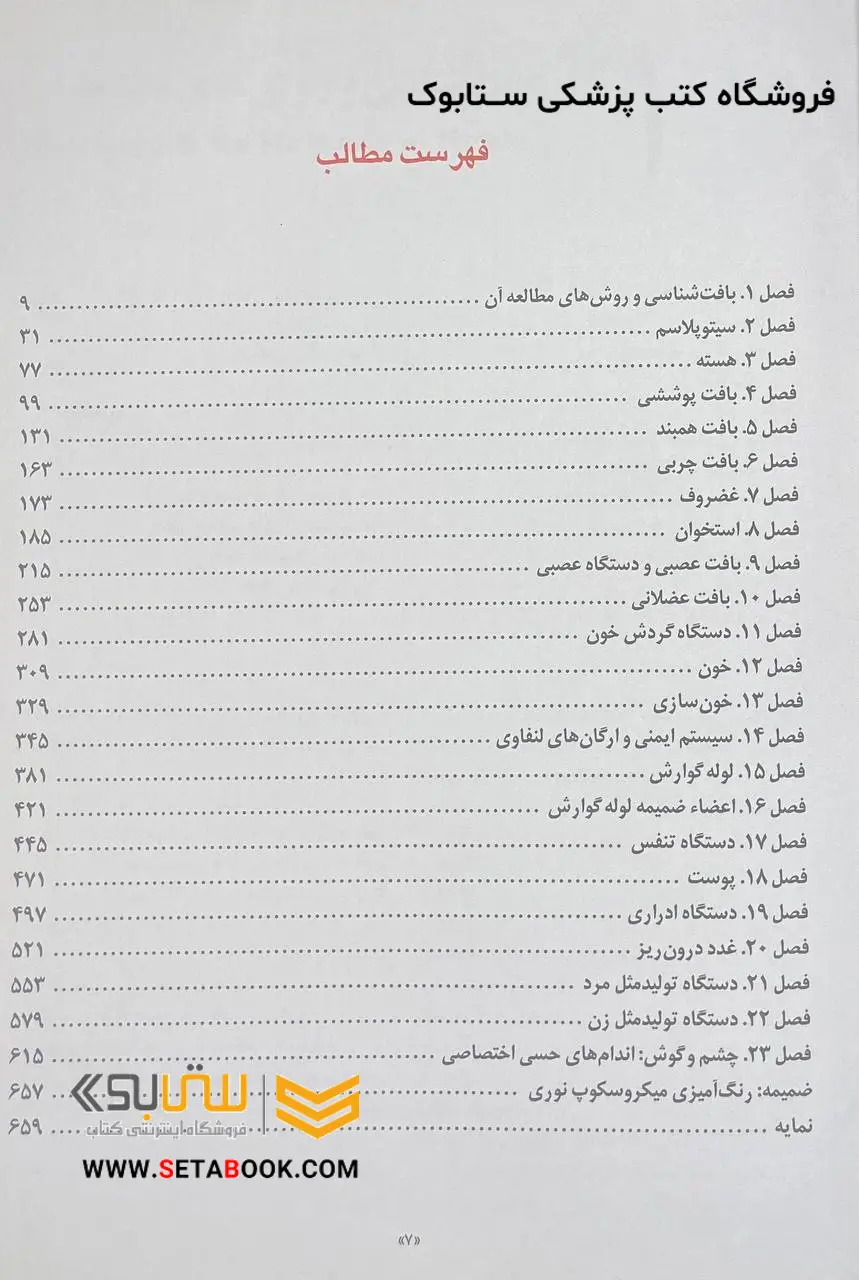 فروشگاه کتب پزشکی ستابوک
فهرست مطالب
فصل ۱. بافت‌شناسی و روش‌های مطالعه آن ........ ۹
فصل ۲. سیتوپلاسم ........ ۳۱
فصل ۳. هسته ........ ۷۷
فصل ۴. بافت پوششی ........ ۹۹
فصل ۵. بافت همبند ........ ۱۳۱
فصل ۶. بافت چربی ........ ۱۶۳
فصل ۷. غضروف ........ ۱۷۳
فصل ۸. استخوان ........ ۱۸۵
فصل ۹. بافت عصبی و دستگاه عصبی ........ ۲۱۵
فصل ۱۰. بافت عضلانی ........ ۲۵۳
فصل ۱۱. دستگاه گردش خون ........ ۲۸۱
فصل ۱۲. خون ........ ۳۰۹
فصل ۱۳. خون‌سازی ........ ۳۲۹
فصل ۱۴. سیستم ایمنی و ارگان‌های لنفاوی ........ ۳۴۵
فصل ۱۵. لوله گوارش ........ ۳۸۱
فصل ۱۶. اعضاء ضمیمه لوله گوارش ........ ۴۲۱
فصل ۱۷. دستگاه تنفس ........ ۴۴۵
فصل ۱۸. پوست ........ ۴۷۱
فصل ۱۹. دستگاه ادراری ........ ۴۹۷
فصل ۲۰. غدد درون‌ریز ........ ۵۲۱
فصل ۲۱. دستگاه تولیدمثل مرد ........ ۵۵۳
فصل ۲۲. دستگاه تولیدمثل زن ........ ۵۷۹
فصل ۲۳. چشم و گوش: اندام‌های حسی اختصاصی ........ ۶۱۵
ضمیمه: رنگ‌آمیزی میکروسکوپ نوری ........ ۶۵۷
نمایه ........ ۶۵۹
ستابوک
فروشگاه اینترنتی کتاب
WWW.SETABOOK.COM
«۷»